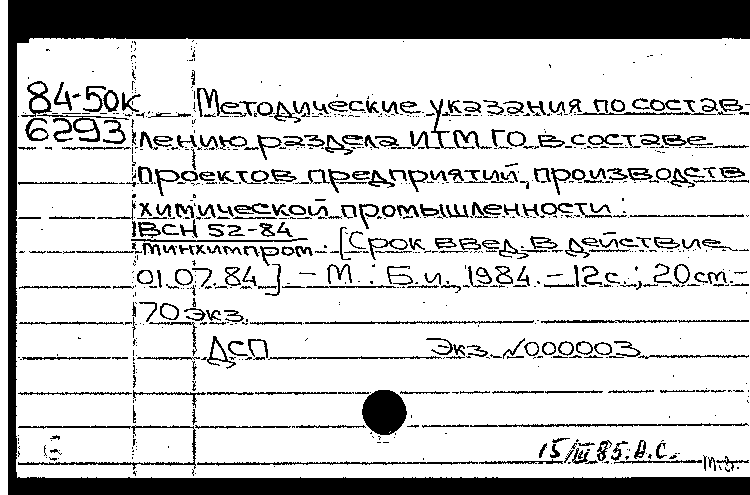 84-50к Методические указания по состав-
6293 лению раздела ИТМ ГО в составе
проектов предприятий, производств
химической промышленности:
ВСН 52-84
Минхимпром. [Срок введ. в действие
01.07.84] - М.: Б.и., 1984. - 12с.; 20см -
70 экз.
ДСП Экз. №000003
15/III 85. В.С.